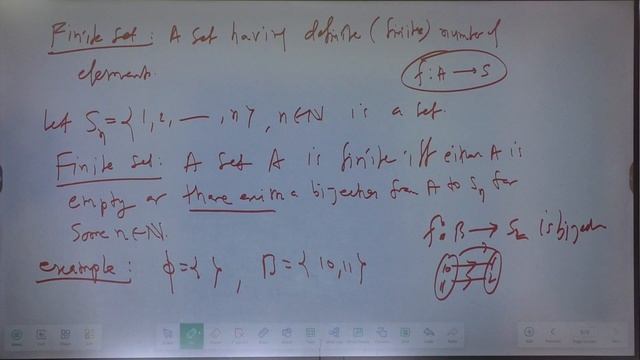 Finite set : A set having definite (finite) number of
elements.
f : A → S
Let Sn = { 1, 2, —, n }, n ∈ N is a set.
Finite set : A set A is finite iff either A is
empty or there exist a bijection from A to Sn for
some n ∈ N.
f : B → S2 is bijection
example : ϕ = { } , B = { 10, 11 }
10 1
11 2